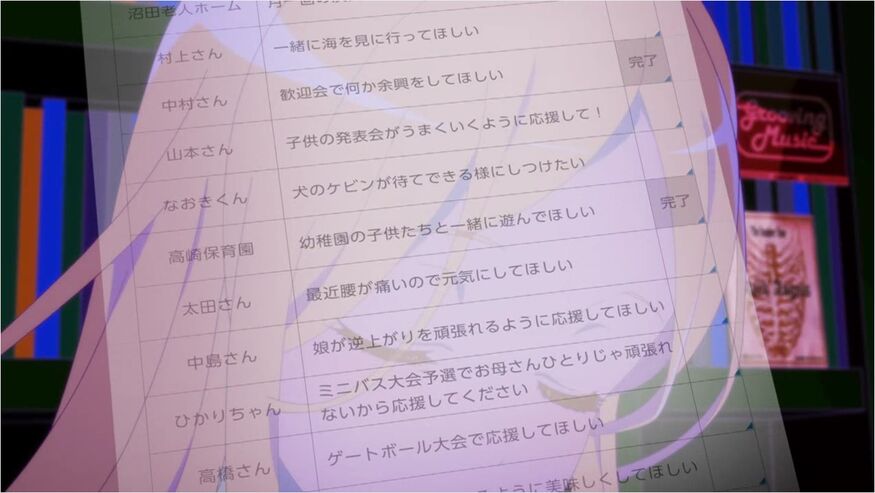 沼田老人ホーム
村上さん 一緒に海を見に行ってほしい
中村さん 歓迎会で何か余興をしてほしい 完了
山本さん 子供の発表会がうまくいくように応援して！
なおきくん 犬のケビンが待てできる様にしつけたい
高崎保育園 幼稚園の子供たちと一緒に遊んでほしい 完了
太田さん 最近腰が痛いので元気にしてほしい
中島さん 娘が逆上がりを頑張れるように応援してほしい
ひかりちゃん ミニバス大会予選でお母さんひとりじゃ頑張れ
ないから応援してください
高橋さん ゲートボール大会で応援してほしい
るように美味しくしてほしい
Grooving
Music